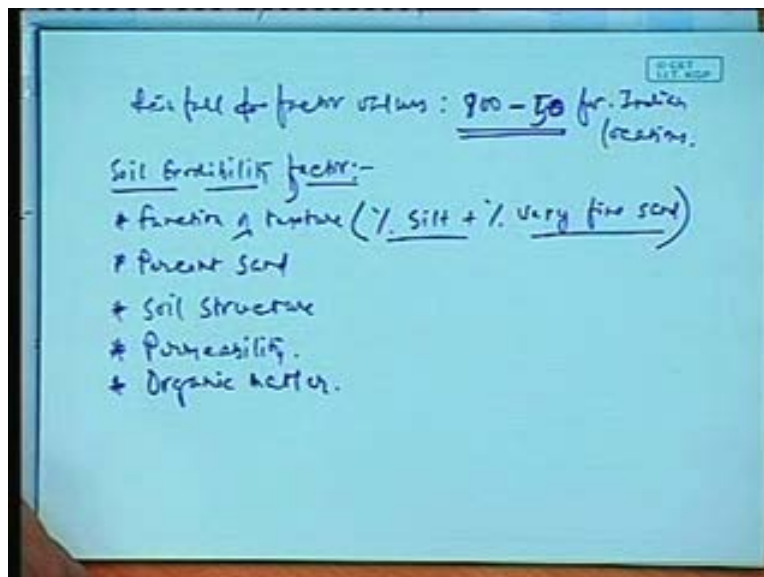 © CET
I.I.T. KGP
Rainfall factor values : 900 - 50 for Indian
locations.
Soil Erodibility factor:-
* Function of texture (% Silt + % Very fine sand)
* Percent Sand
* Soil Structure
* Permeability.
* Organic matter.